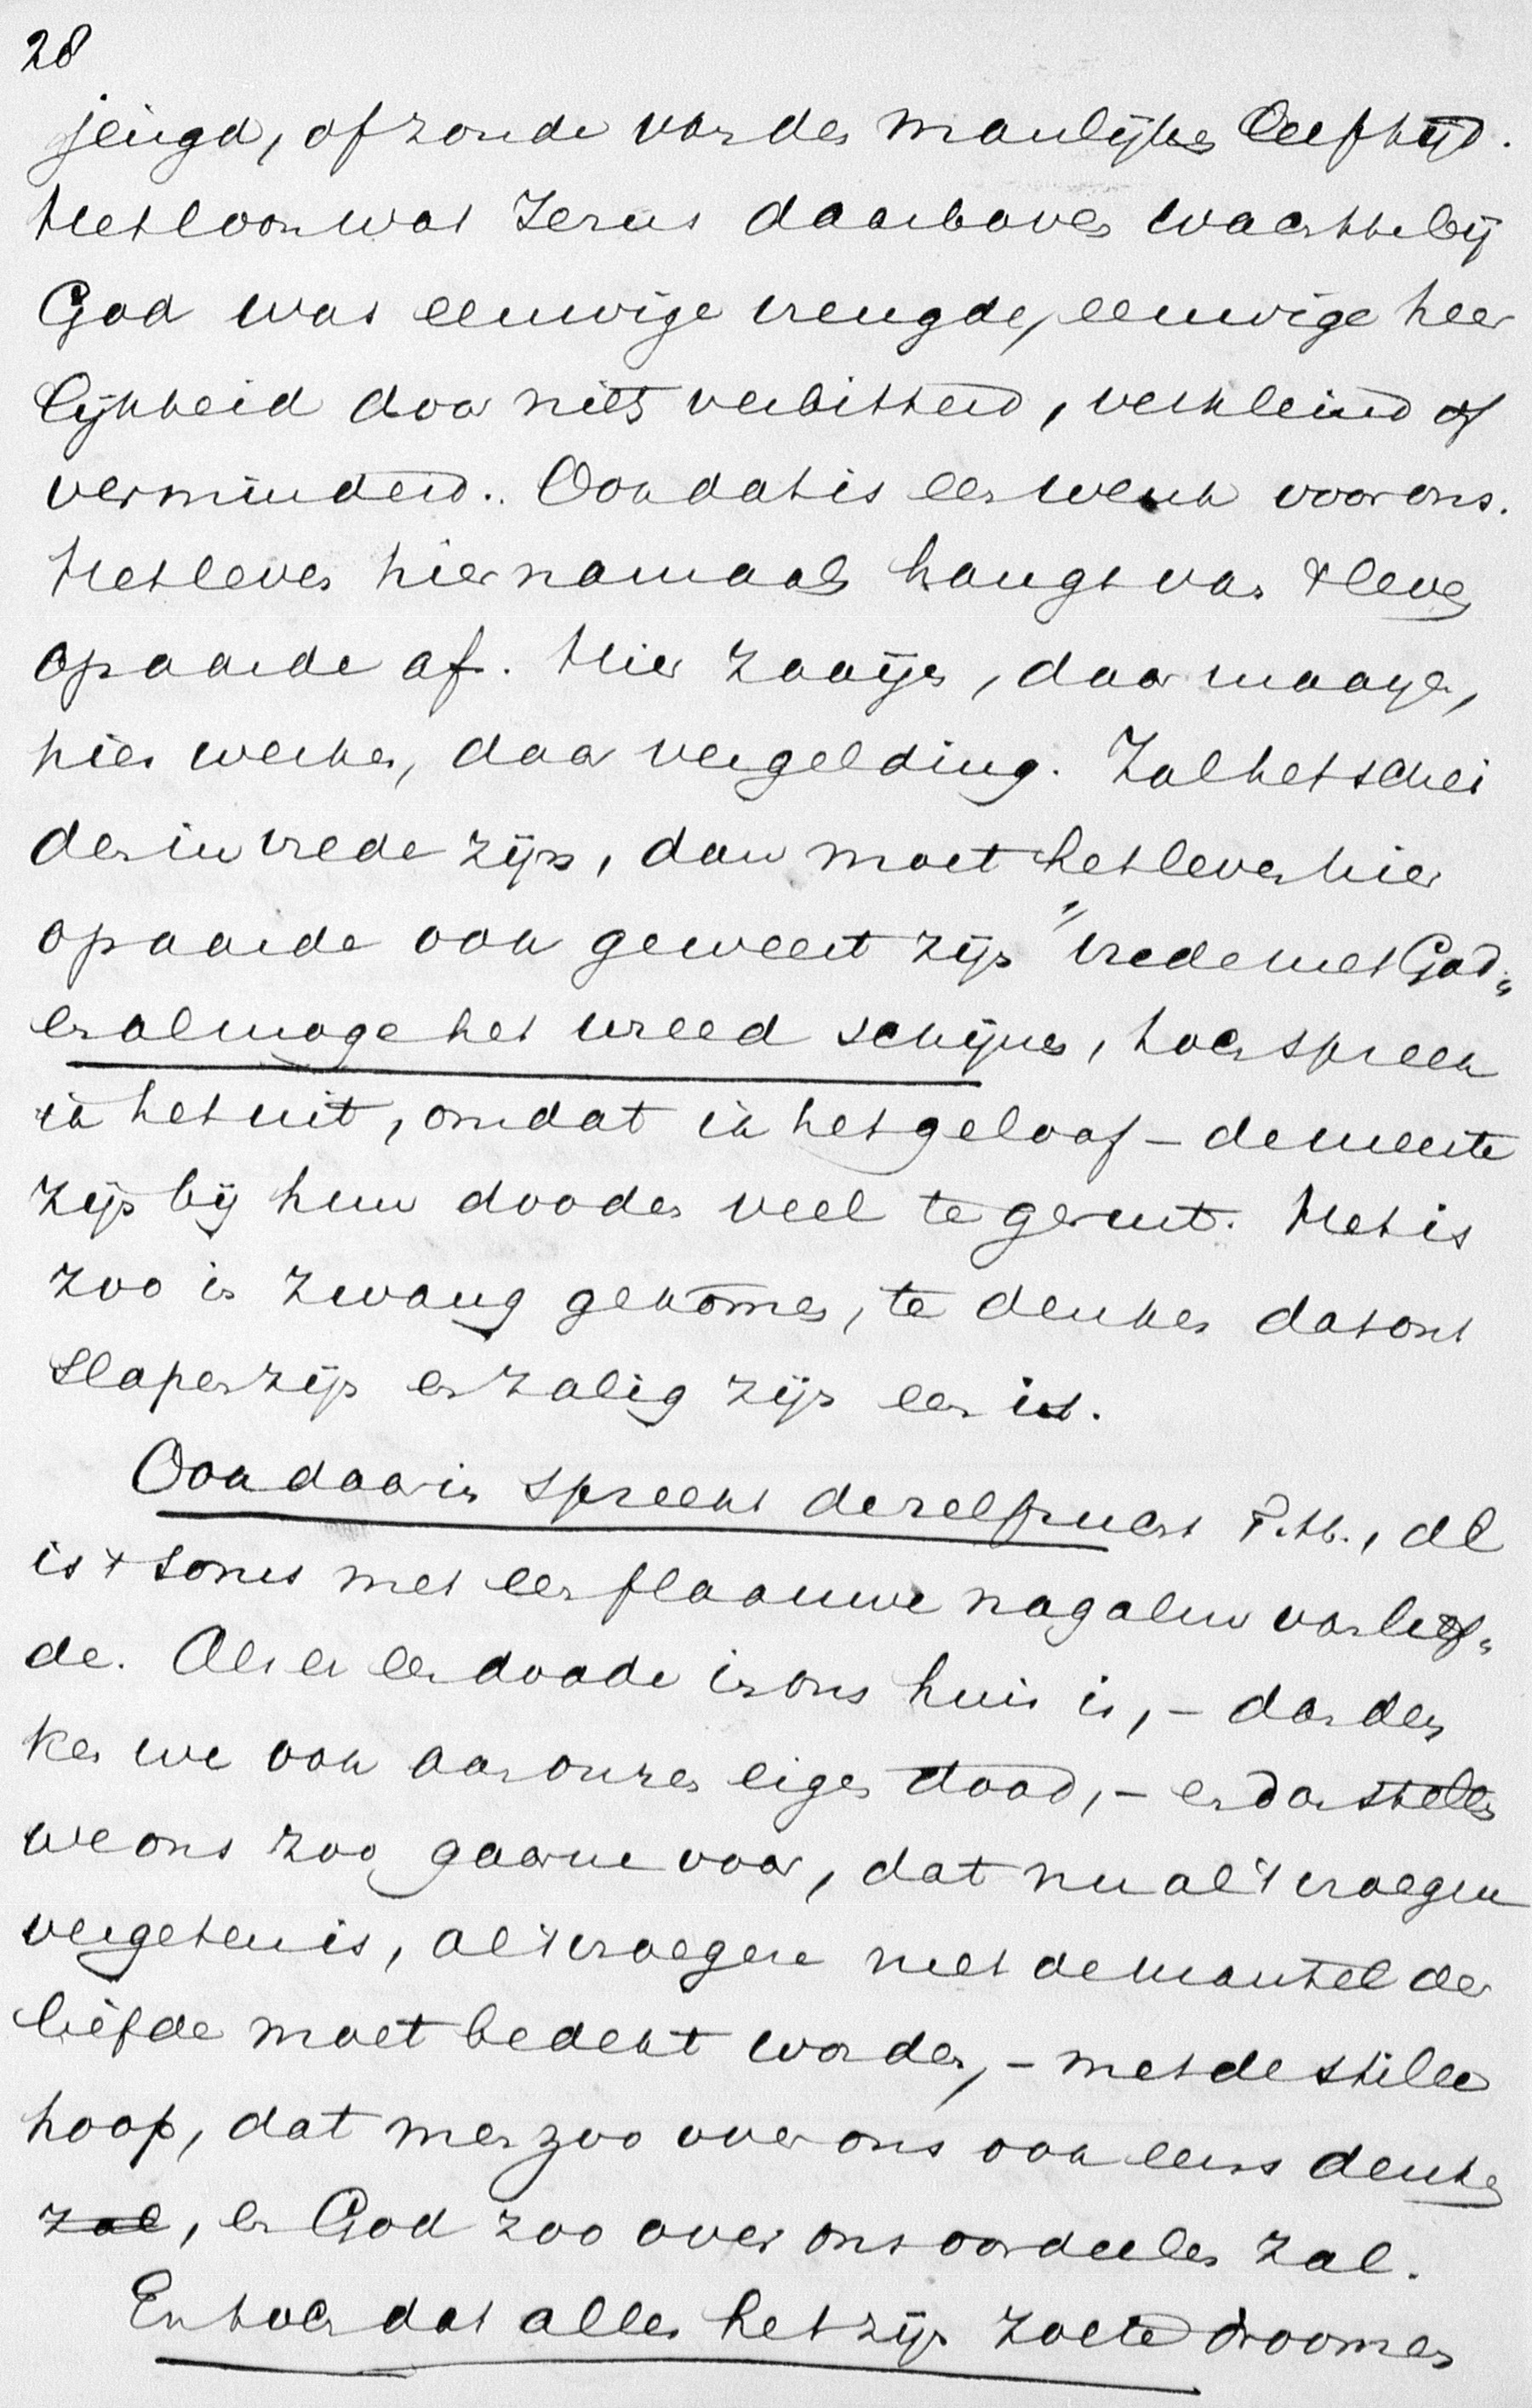 28
jeugd, of zonde van den manlijken leeftijd.
Het loon wat Jezus daarboven wachtte bij
God was eeuwige vreugde, eeuwige heer
lijkheid door niets verbitterd, verkleind of
verminderd. Ook dat is een wenk voor ons.
Het leven hiernamaals hangt van 't leven
op aarde af. Hier zaaijen, daar maaijen,
hier werken, daar vergelding. Zal het schei
den in vrede zijn, dan moet het leven hier
op aarde ook geweest zijn "vrede met God„
en al moge het wreed schijnen, toch spreek
ik het uit, omdat ik het geloof – de meeste
zijn bij hun dooden veel te gerust. Het is
zoo in zwang gekomen, te denken dat ont
slapen zijn en zalig zijn een is.
Ook daarin spreekt de zelfzucht P.H., al
is 't soms met een flaauwe nagalm van lief„
de. Als er een doode in ons huis is, – dan den
ken we ook aan onzen eigen dood, – en dan stellen
we ons zoo gaarne voor, dat nu al 't vroegere
vergeten is, al 't vroegere met de mantel der
liefde moet bedekt worden, – met de stille
hoop, dat men zoo over ons ook eens denken
zal, en God zoo over ons oordeelen zal.
En toch dat alles het zijn zoete droomen